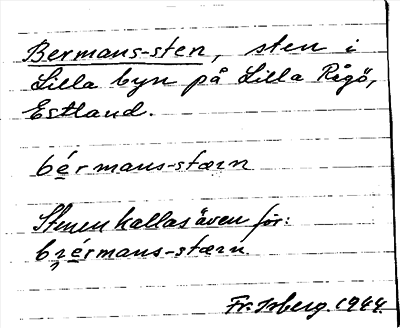 Bermans-sten, sten i
Lilla byn på Lilla Rågö,
Estland.
bérmans-stærn
Stenen kallas även för:
bɿérmans-stærn
Fr. Isberg. 1944.